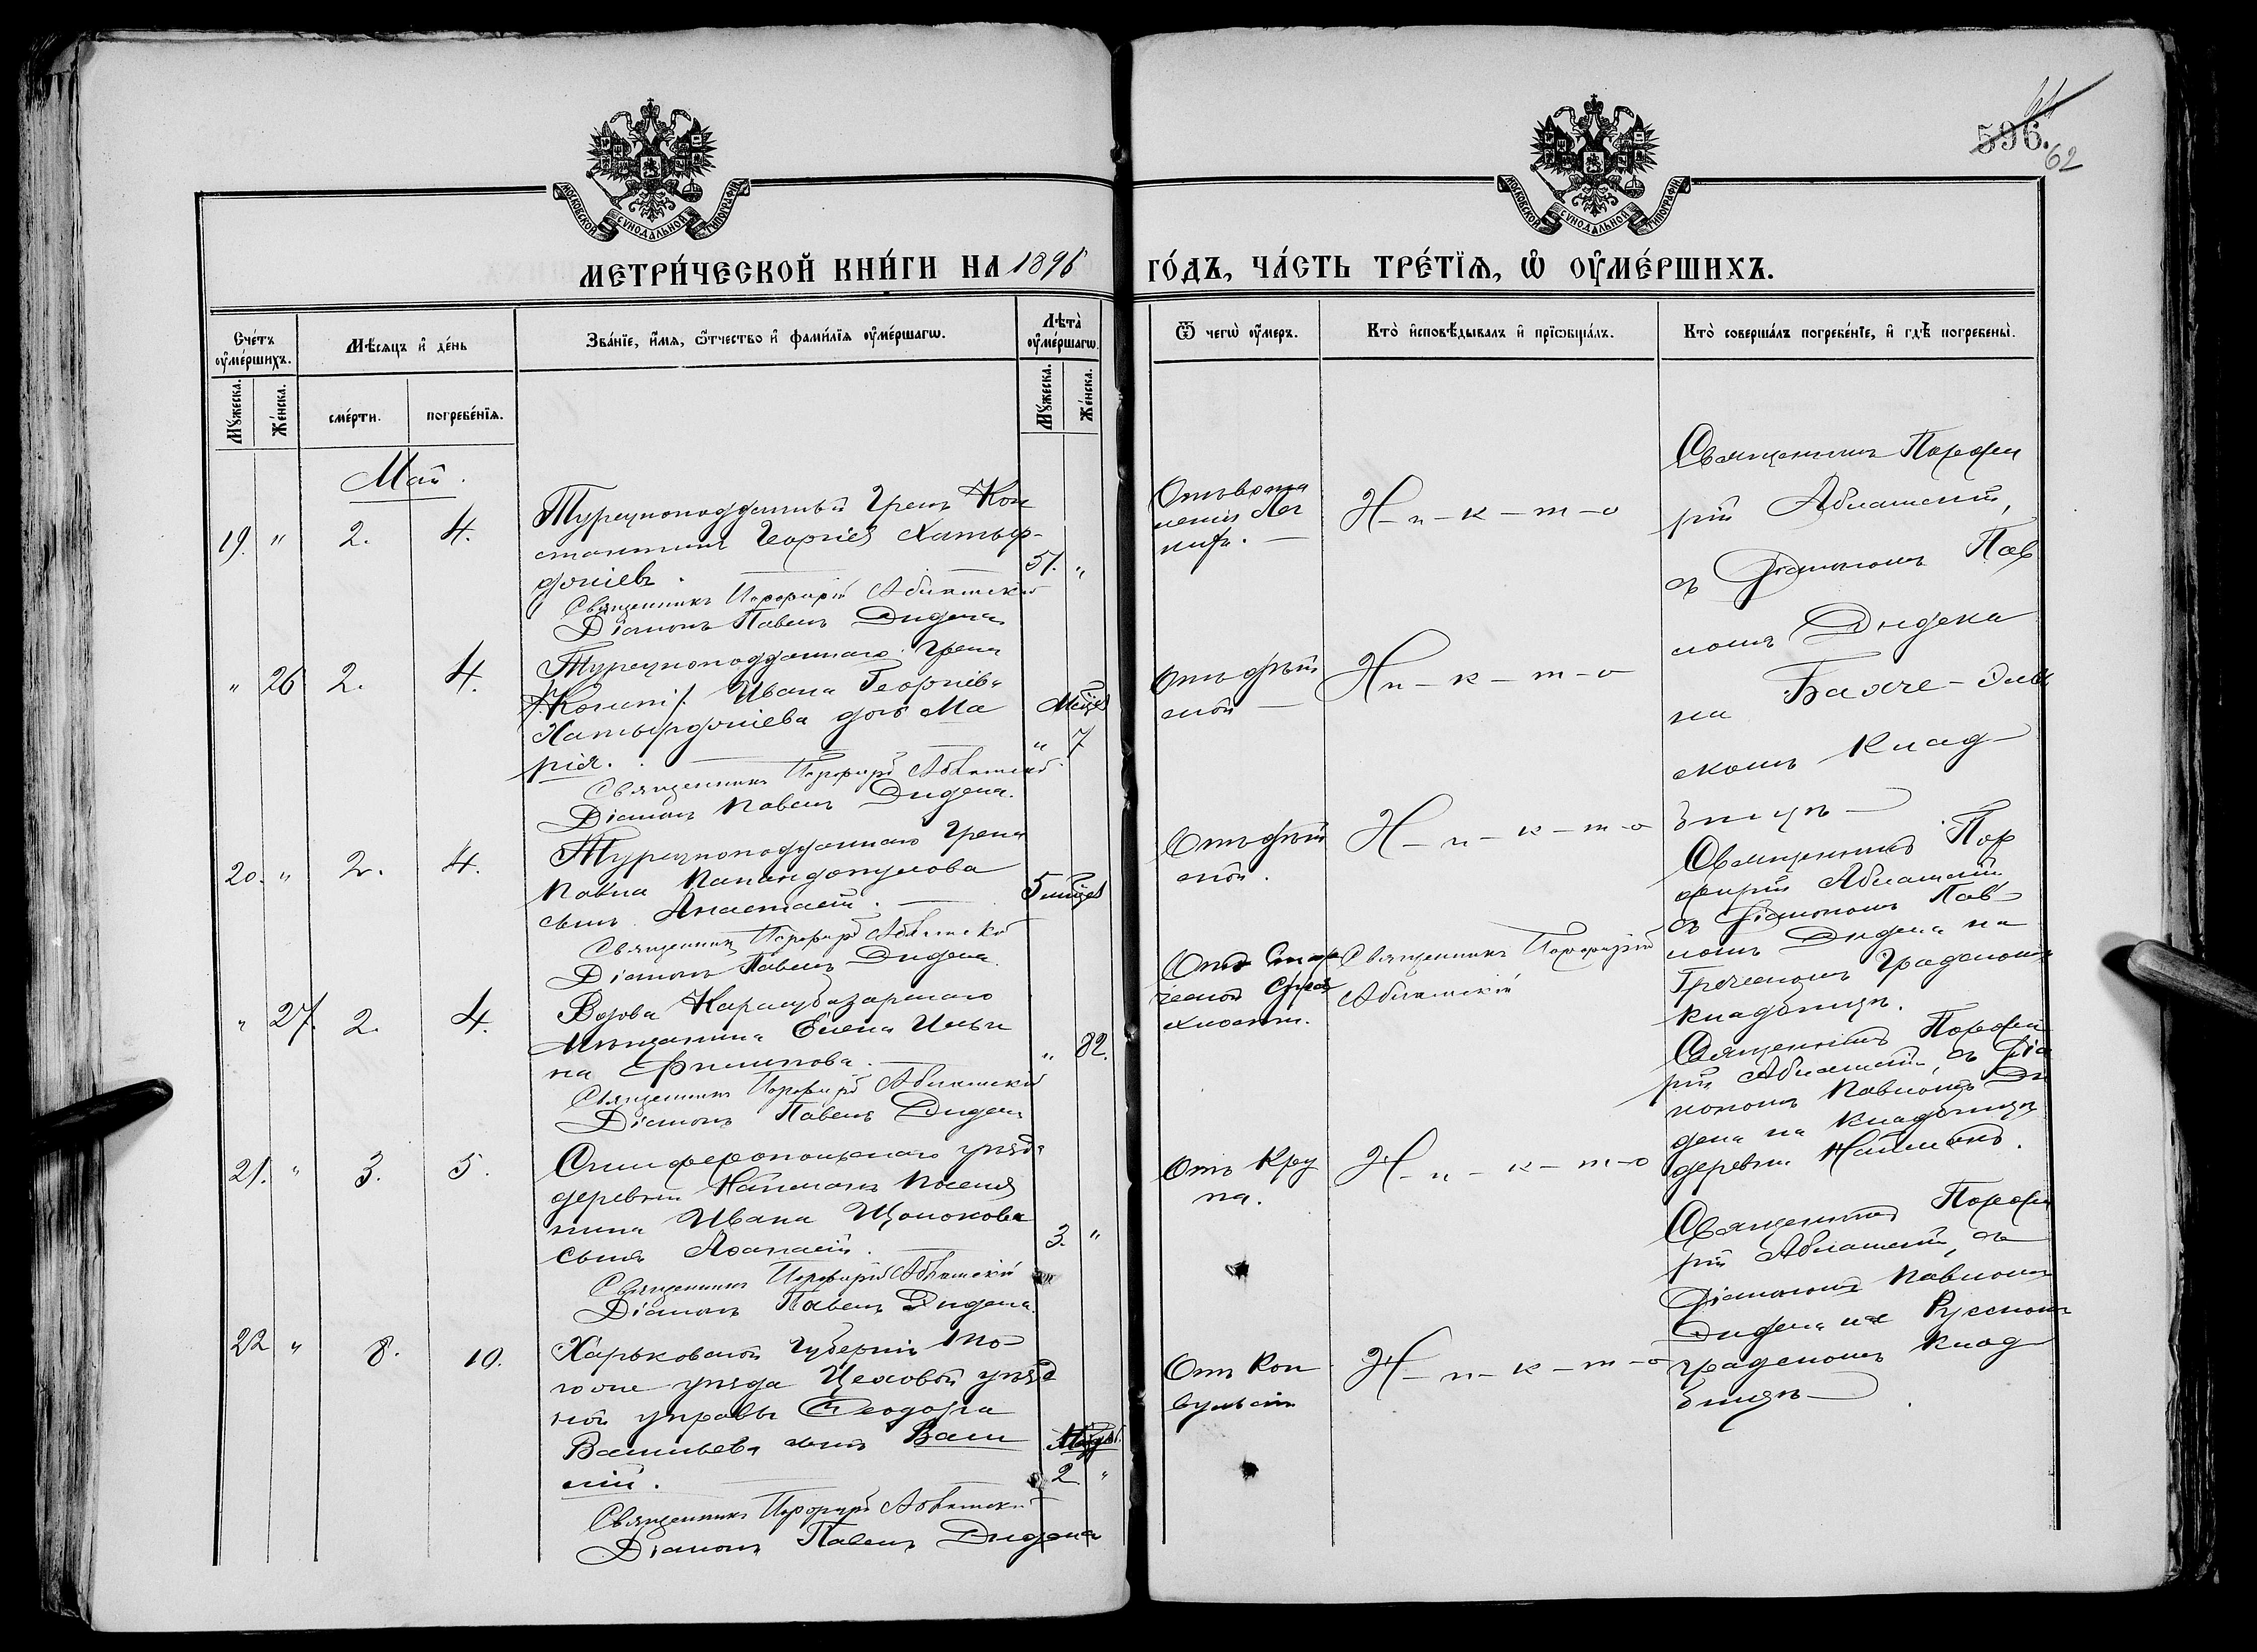 61
596.
62
МОСКОВСКОЙ СѴНОДАЛЬНОЙ ТИПОГРАФІИ
МОСКОВСКОЙ СѴНОДАЛЬНОЙ ТИПОГРАФІИ
МЕТРИ́ЧЕСКОЙ КНИ́ГИ НА 1896
ГО́ДЪ, ЧА́СТЬ ТРЕ́ТІѦ, Ѡ҆ ОУ҆МЕ́РШИХЪ.
Сче́тъ оу҆ме́ршихъ.
Мꙋ́жеска.
Же́нска.
Мѣ́сѧцъ и҆ де́нь
сме́рти.
погребе́нїѧ.
Зва́нїе, и҆́мѧ, ѻ҆́тчество и҆ фами́лїѧ оу҆ме́ршагѡ.
Лѣта̀ оу҆ме́ршагѡ.
Мꙋ́жеска.
Же́нска.
Ѿ чегѡ̀ оу҆́меръ.
Кто̀ и҆сповѣ́дывалъ и҆ прїѡбща́лъ.
Кто̀ соверша́лъ погребе́нїе, и҆ гдѣ̀ погребены̀.
Май.
19. " 2. 4.
Турецкоподданный Грекъ Кон
стантинъ Георгіевъ Хатыр-
51. "
Священникъ Порфирій Абламскій
Діаконъ Павелъ Дидека
Отъ воспа
ленія Лег
кихъ. —
Н-и-к-т-о
Священникъ Порфи
рій Абламскій,
съ Діакономъ Пав
ломъ Дидека
на Бахче-Эли
скомъ Клад
бищѣ —
" 26 2. 4.
Турецкоподданнаго Грека
Ивана Георгіева
дочь Ма
рія. —
Мѣсяц.
" 7
Священникъ Порфирій Абламскій
Діаконъ Павелъ Дидека.
Н и-к-т-о
20. " 2. 4.
Турецкоподданнаго Грека
Павла Папандопулова
сынъ Анастасій. —
5 мѣсяц.
Священникъ Порфирій Абламскій
Діаконъ Павелъ Дидека.
Н-и-к-т-о
Священникъ Пор
фирій Абламскій
съ Діакономъ Пав
ломъ Дидека на
Греческомъ Градскомъ
кладбищѣ.
" 27. 2. 4.
Вдова Карасубазарскаго
Мѣщанина Елена Ильи
на Филипова. —
" 82.
Священникъ Порфирій Абламскій
Діаконъ Павелъ Дидека
Отъ Стар
ческой Дрях
лости.
Священникъ Порфирій
Абламскій
Священникъ Порфи
рій Абламскій, съ Діа
кономъ Павломъ Ди
дека на кладбищѣ
деревни Найманъ.
21. " 3. 5.
Симферопольскаго уѣзда
деревни Найманъ поселя
нина Ивана
сынъ Аѳанасій. —
3. "
Священникъ Порфирій Абламскій
Діаконъ Павелъ Дидека.
Отъ Кру
па.
Н-и-к-т-о
Священникъ Порфи
рій Абламскій, съ
Діакономъ Павломъ
Дидека на Русскомъ
градскомъ клад
бищѣ —
22 " 8. 10.
Харьковской Губерніи
уѣзда Цеховой
ной управы Ѳеодора
Васильева сынъ Васи
лій. —
2 "
Священникъ Порфирій Абламскій
Діаконъ Павелъ Дидека
Отъ Кон
вульсіи
Н-и-к-т-о